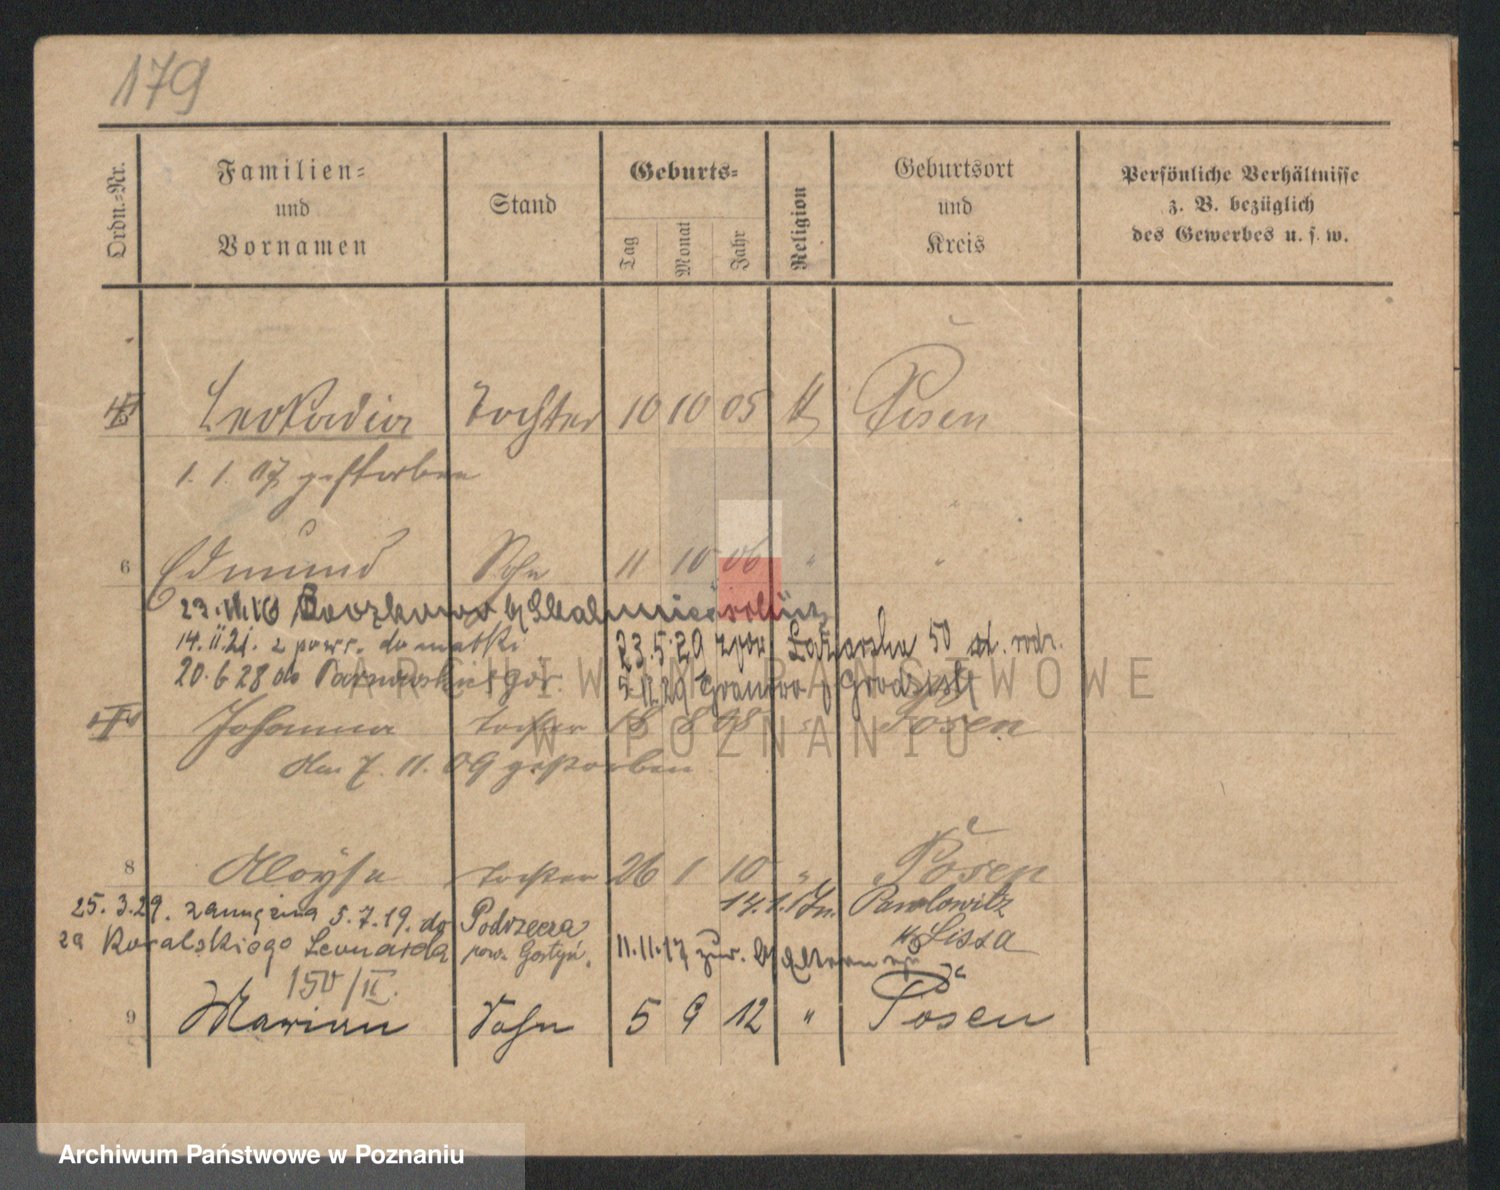 179
Ordn.-Nr.
Familien-
und
Vornamen
Stand
Geburts-
Tag
Monat
Jahr
Religion
Geburtsort
und
Kreis
Persönliche Verhältnisse
z. B. bezüglich
des Gewerbes u. s. w.
Leokadia Tochter 10 10 05 Posen
1. 1. 07 gestorben
6 Edmund Sohn 11 10 06 " "
14. II. 21. z powr. do matki 23. 5. 29 Łazarska 50
20. 6 28 do 5. 12. 29 Granowo Grodzisk
Johanna Tochter 18 8 08 Posen
den 7. 11. 09 gestorben
ARCHIWUM PAŃSTWOWE
W POZNANIU
8 Aloysa Tochter 26 1 10 " Posen
25. 3. 29. zamężna 5. 7. 19. do Podrzecza 14. 1. Pawlowitz
za Kowalskiego Leonarda pow. Gostyń. 11. 11. 17 zur. Eltern Lissa
150/II.
9 Marian Sohn 5 9 12 " Posen
Archiwum Państwowe w Poznaniu